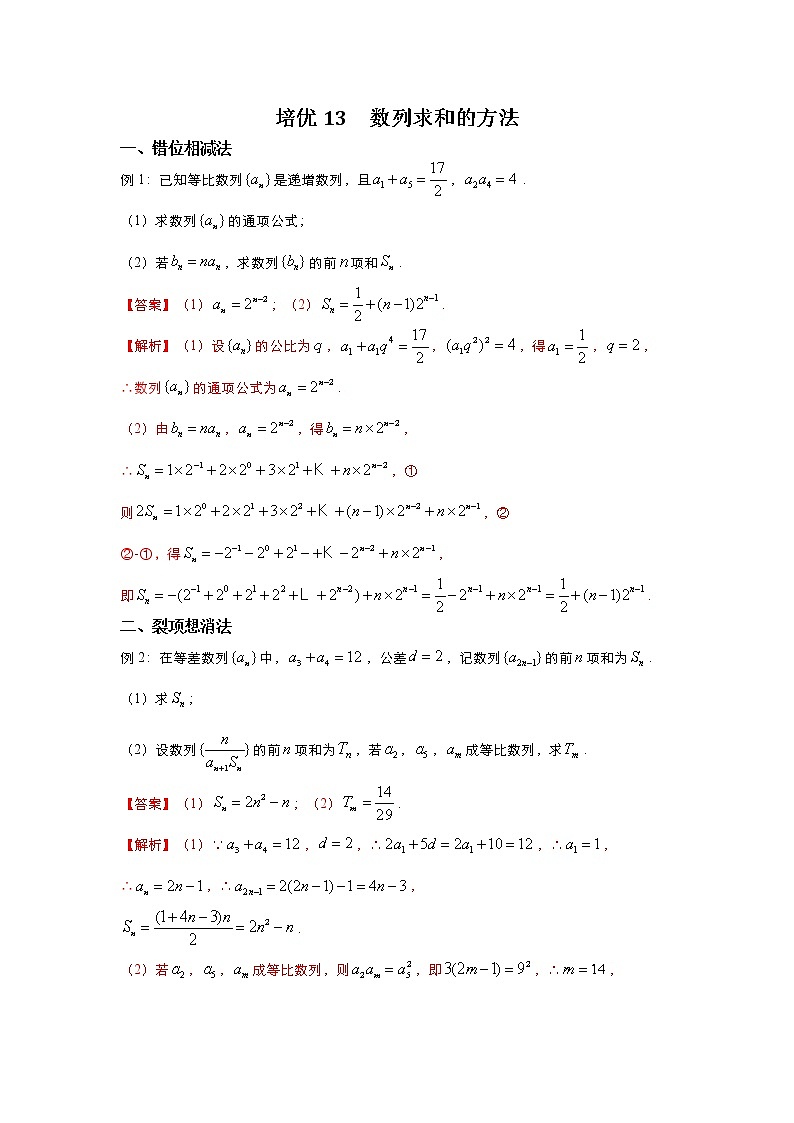 培优 13 数列求和的方法
一、错位相减法
例 1：已知等比数列{aₙ}是递增数列，且a₁+a₅=17/2，a₂a₄=4．
（1）求数列{aₙ}的通项公式；
（2）若bₙ=naₙ，求数列{bₙ}的前n项和Sₙ．
【答案】（1）aₙ=2ⁿ⁻²；（2）Sₙ=1/2+(n−1)2ⁿ⁻¹．
【解析】（1）设{aₙ}的公比为q，a₁+a₁q⁴=17/2，(a₁q²)²=4，得a₁=1/2，q=2，
∴数列{aₙ}的通项公式为aₙ=2ⁿ⁻²．
（2）由bₙ=naₙ，aₙ=2ⁿ⁻²，得bₙ=n×2ⁿ⁻²，
∴Sₙ=1×2⁻¹+2×2⁰+3×2¹+K +n×2ⁿ⁻²，①
则2Sₙ=1×2⁰+2×2¹+3×2²+K +(n−1)×2ⁿ⁻²+n×2ⁿ⁻¹，②
②-①，得Sₙ=−2⁻¹−2⁰+2¹−+K −2ⁿ⁻²+n×2ⁿ⁻¹，
即Sₙ=−(2⁻¹+2⁰+2¹+2²+L +2ⁿ⁻²)+n×2ⁿ⁻¹=1/2−2ⁿ⁻¹+n×2ⁿ⁻¹=1/2+(n−1)2ⁿ⁻¹．
二、裂项想消法
例 2：在等差数列{aₙ}中，a₃+a₄=12，公差d=2，记数列{a₂ₙ₋₁}的前n项和为Sₙ．
（1）求Sₙ；
（2）设数列{n/(aₙ₊₁Sₙ)}的前n项和为Tₙ，若a₂，a₅，aₘ成等比数列，求Tₘ．
【答案】（1）Sₙ=2n²−n；（2）Tₘ=14/29．
【解析】（1）∵a₃+a₄=12，d=2，∴2a₁+5d=2a₁+10=12，∴a₁=1，
∴aₙ=2n−1，∴a₂ₙ₋₁=2(2n−1)−1=4n−3，
Sₙ=(1+4n−3)n/2=2n²−n．
（2）若a₂，a₅，aₘ成等比数列，则a₂aₘ=a₅²，即3(2m−1)=9²，∴m=14，